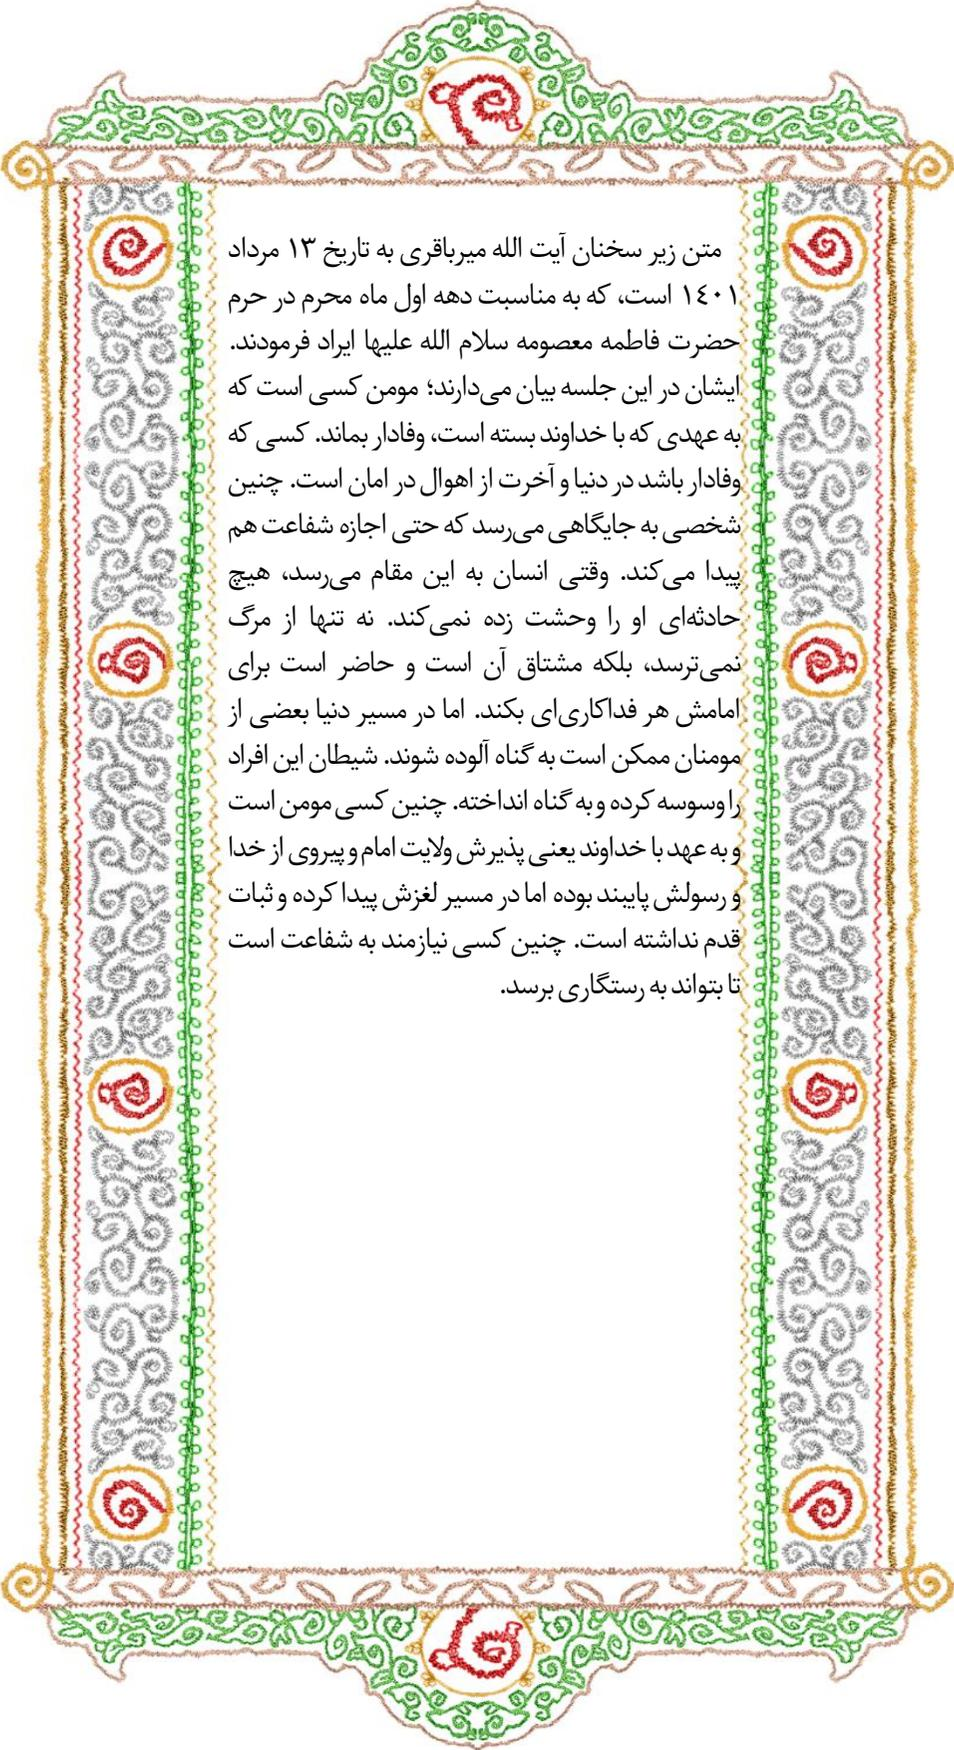 متن زیر سخنان آیت الله میرباقری به تاریخ ۱۳ مرداد
۱٤۰۱ است، که به مناسبت دهه اول ماه محرم در حرم
حضرت فاطمه معصومه سلام الله علیها ایراد فرمودند.
ایشان در این جلسه بیان می‌دارند؛ مومن کسی است که
به عهدی که با خداوند بسته است، وفادار بماند. کسی که
وفادار باشد در دنیا و آخرت از اهوال در امان است. چنین
شخصی به جایگاهی می‌رسد که حتی اجازه شفاعت هم
پیدا می‌کند. وقتی انسان به این مقام می‌رسد، هیچ
حادثه‌ای او را وحشت زده نمی‌کند. نه تنها از مرگ
نمی‌ترسد، بلکه مشتاق آن است و حاضر است برای
امامش هر فداکاری‌ای بکند. اما در مسیر دنیا بعضی از
مومنان ممکن است به گناه آلوده شوند. شیطان این افراد
را وسوسه کرده و به گناه انداخته. چنین کسی مومن است
و به عهد با خداوند یعنی پذیرش ولایت امام و پیروی از خدا
و رسولش پایبند بوده اما در مسیر لغزش پیدا کرده و ثبات
قدم نداشته است. چنین کسی نیازمند به شفاعت است
تا بتواند به رستگاری برسد.